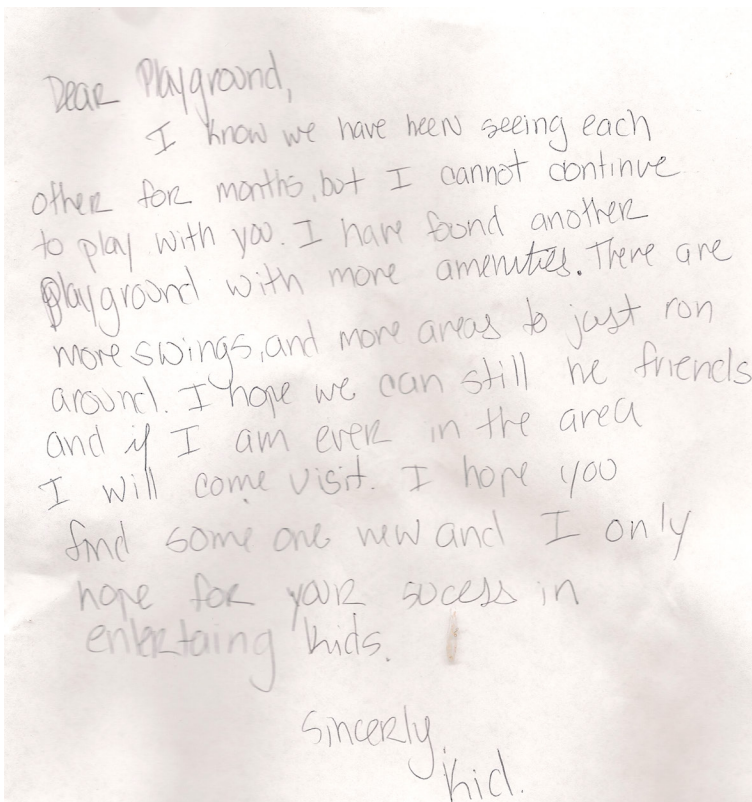 Dear Playground,
I know we have been seeing each
other for months, but I cannot continue
to play with you. I have found another
playground with more amenities. There are
more swings, and more areas to just run
around. I hope we can still be friends
and if I am ever in the area
I will come visit. I hope you
find some one new and I only
hope for your sucess in
entertaing kids.
Sincerly,
Kid.